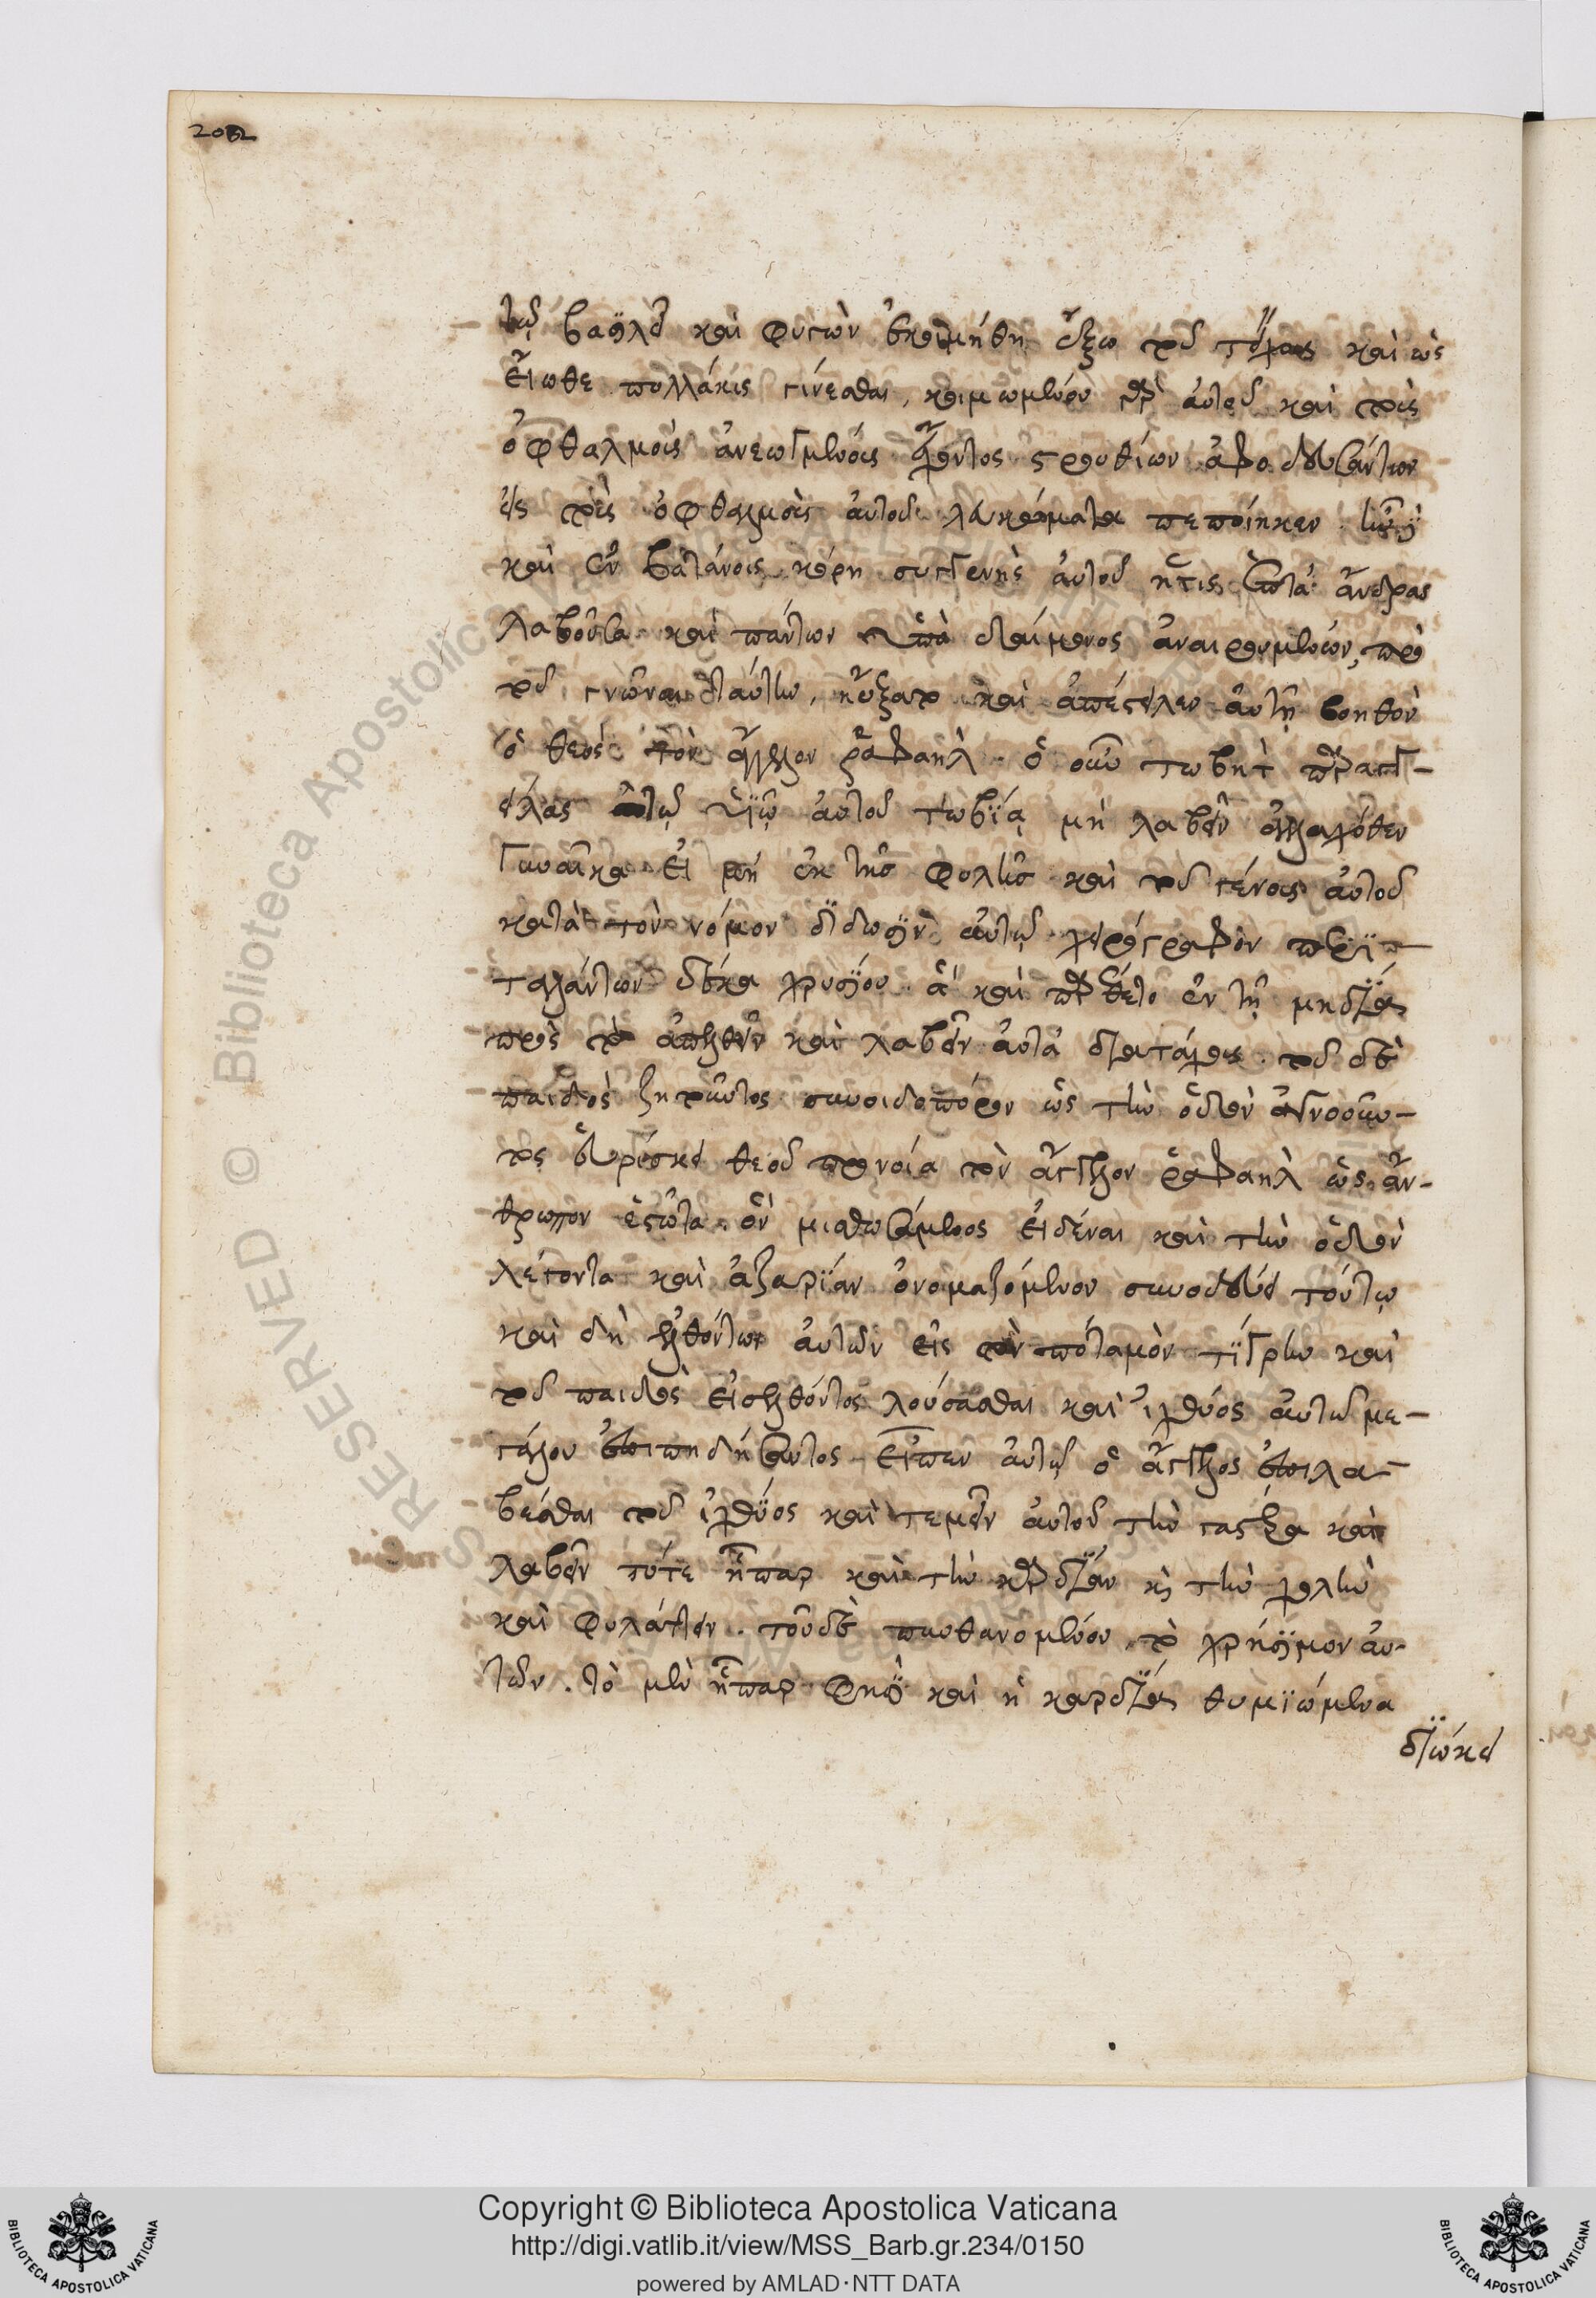 202
τῷ βασιλεῖ καὶ φυγὼν ἐκοιμήθη ἔξω τοῦ καὶ ὡς
εἴωθε πολλάκις γίνεσθαι, κοιμωμένου παρ' αὐτοῦ καὶ τοῖς
ὀφθαλμοῖς ἀνεωγμένοις στρουθίων ἀφοδευσάντων
εἰς τοὺς ὀφθαλμοὺς αὐτοῦ λευκώματα πεποίηκεν. ἦν
καὶ ἐν βατάνοις κόρη συγγενὴς αὐτοῦ ἥτις ἑπτὰ ἄνδρας
λαβοῦσα καὶ πάντων ὑπὸ δαίμονος ἀναιρουμένων, πρὸ
τοῦ γνῶναι ταύτην, ηὔξατο καὶ ἀπέστειλεν αὐτῇ βοηθὸν
ὁ θεὸς τὸν ἄγγελον ῥαφαήλ. ὁ οὖν τωβὴτ παραγγ-
είλας τῷ ὑϊῷ αὐτοῦ τωβίᾳ μὴ λαβεῖν ἀλλαχόθεν
γυναῖκα εἰ μὴ ἐκ τῆς φυλῆς καὶ τοῦ γένους αὐτοῦ
κατὰ τὸν νόμον δίδωσιν αὐτῷ χειρόγραφον περὶ
ταλάντων δέκα χρυσίου. ἃ καὶ παρέθετο ἐν τῇ μηδίᾳ
πρὸς τὸ ἀπελθεῖν καὶ λαβεῖν αὐτὰ διὰ τάχους. τοῦ δὲ
παιδὸς ζητοῦντος συνοιδοπόρον ὡς τὴν ὁδὸν ἀγνοοῦν-
τος εὑρίσκει θεοῦ προνοίᾳ τὸν ἄγγελον ῥαφαὴλ ὡς ἄν-
θρωπον ἑστῶτα. ὃν μισθωσάμενος εἰδέναι καὶ τὴν ὁδὸν
λέγοντα καὶ ἀζαρίαν ὀνομαζόμενον συνοδεύει τούτῳ
καὶ δὴ ἐλθόντων αὐτῶν εἰς τὸν πόταμὸν τίγρην καὶ
τοῦ παιδὸς εἰσελθόντος λούσασθαι καὶ ἰχθύος αὐτῷ με-
γάλου ἐπιπηδήσαντος εἶπεν αὐτῷ ὁ ἄγγελος ἐπιλα-
βέσθαι τοῦ ἰχθύος καὶ τεμεῖν αὐτοῦ τὴν γαστέρα καὶ
λαβεῖν τότε ἧπαρ καὶ τὴν καρδίαν κὶ τὴν χολὴν
καὶ φυλάττειν. τοῦ δὲ πυνθανομένου τὸ χρήσιμον αὐ-
τῶν. τὸ μὲν ἧπαρ φησὶ καὶ ἡ καρδία θυμιώμενα
διώκει
Copyright © Biblioteca Apostolica Vaticana
http://digi.vatlib.it/view/MSS_Barb.gr.234/0150
powered by AMLAD·NTT DATA